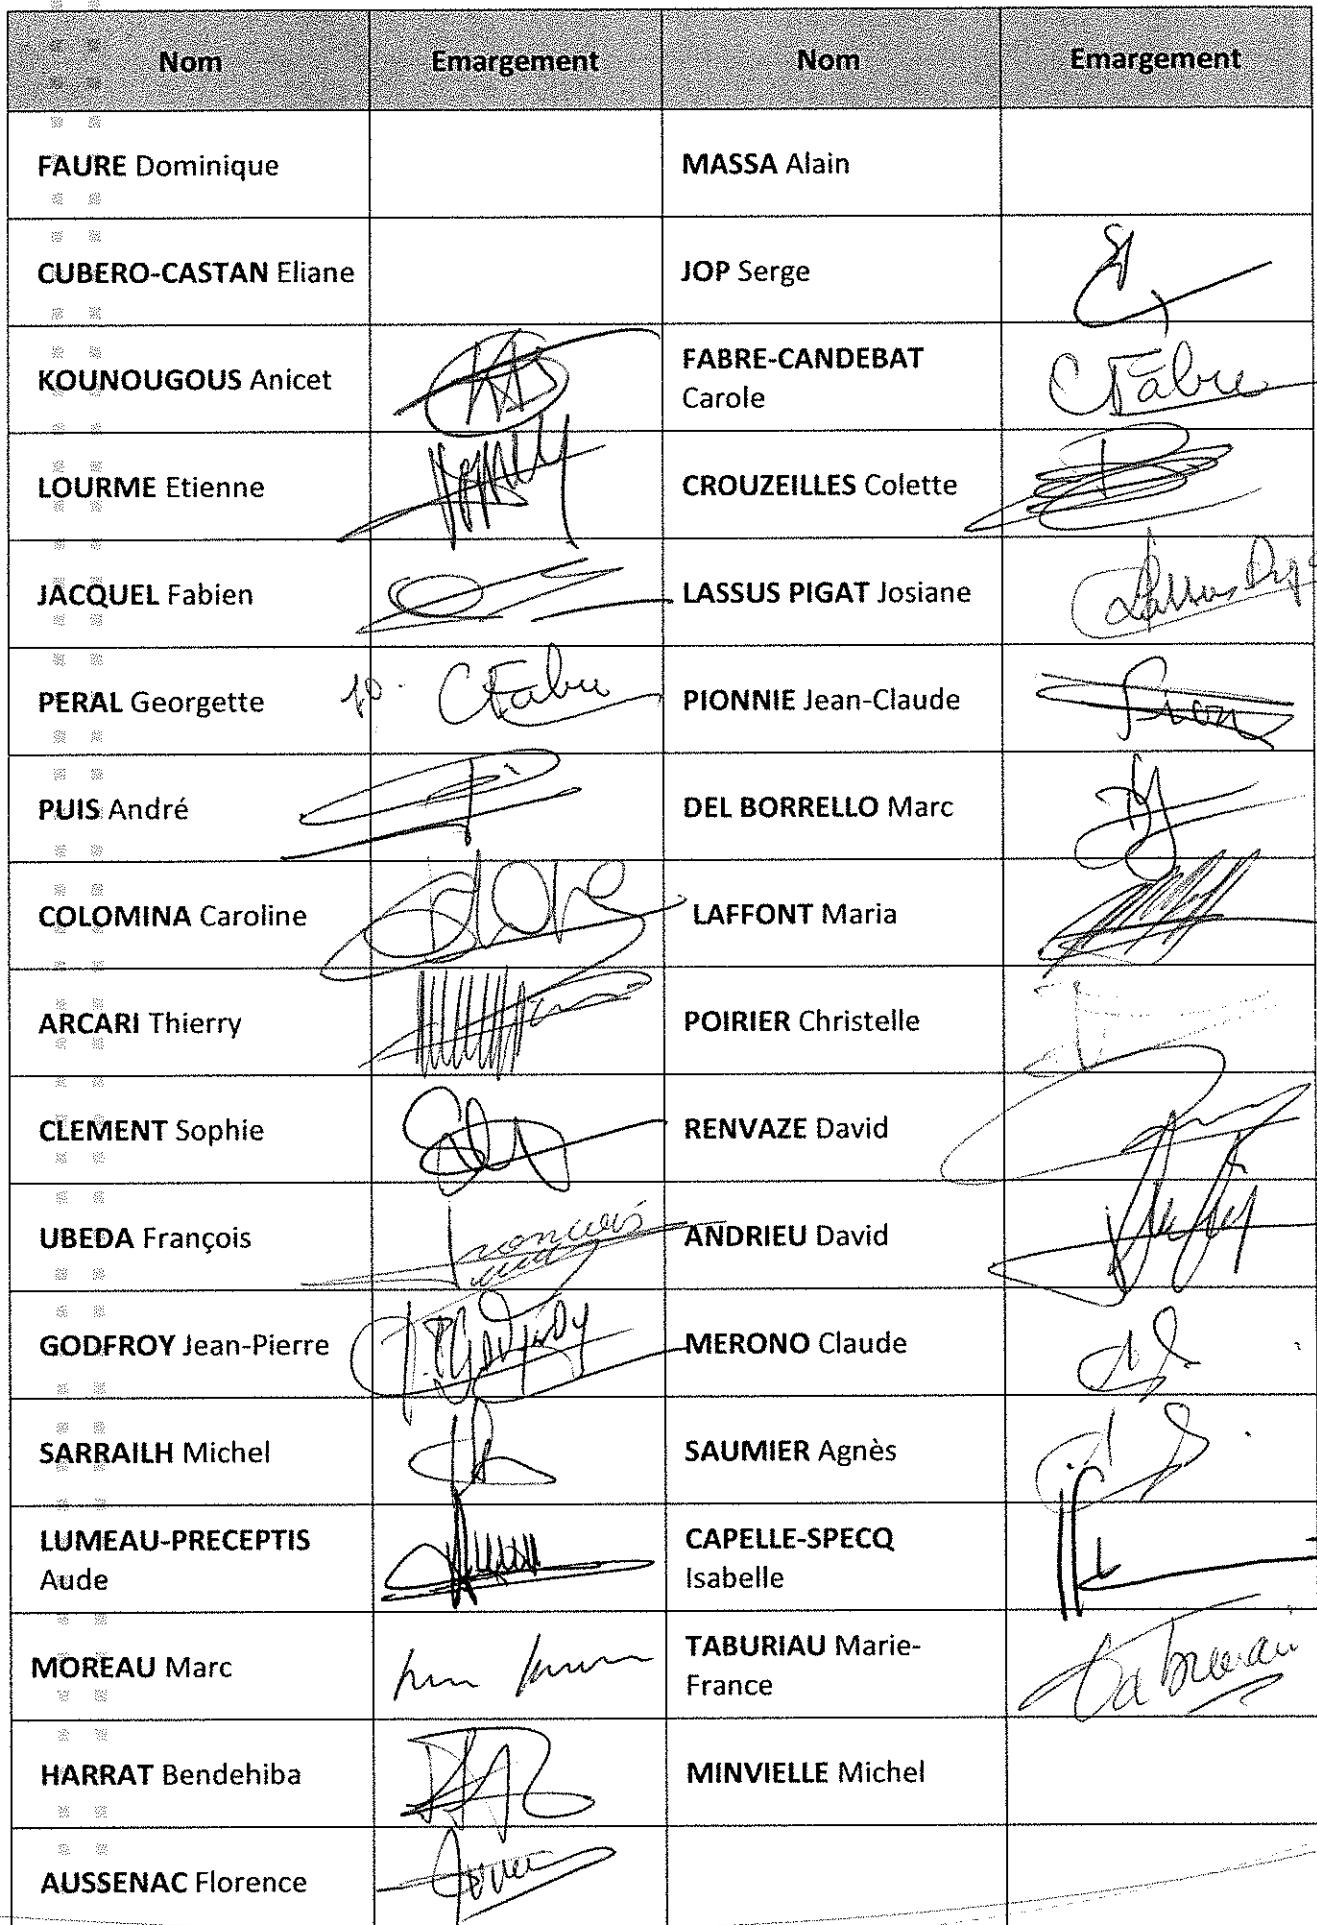 Nom Emargement Nom Emargement
FAURE Dominique MASSA Alain
CUBERO-CASTAN Eliane JOP Serge
KOUNOUGOUS Anicet FABRE-CANDEBAT
Carole CFabre
LOURME Etienne CROUZEILLES Colette
JACQUEL Fabien LASSUS PIGAT Josiane Lassus
PERAL Georgette CFabre PIONNIE Jean-Claude
PUIS André DEL BORRELLO Marc
COLOMINA Caroline LAFFONT Maria
ARCARI Thierry POIRIER Christelle
CLEMENT Sophie RENVAZE David
UBEDA François françois ANDRIEU David
GODFROY Jean-Pierre MERONO Claude
SARRAILH Michel SAUMIER Agnès
LUMEAU-PRECEPTIS
Aude CAPELLE-SPECQ
Isabelle
MOREAU Marc TABURIAU Marie-
France Taburiau
HARRAT Bendehiba MINVIELLE Michel
AUSSENAC Florence